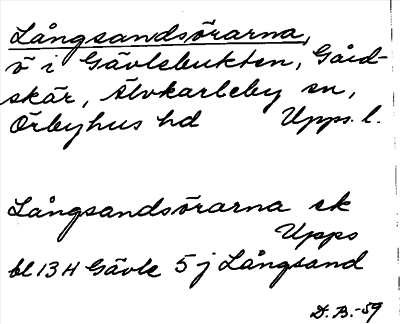 Långsandsörarna,
ö i Gävlebukten, Gård-
skär, Älvkarleby sn,
Örbyhus hd Upps. l.
Långsandsörarna ek
Upps
bl 13 H Gävle 5 j Långsand
D. B. -59